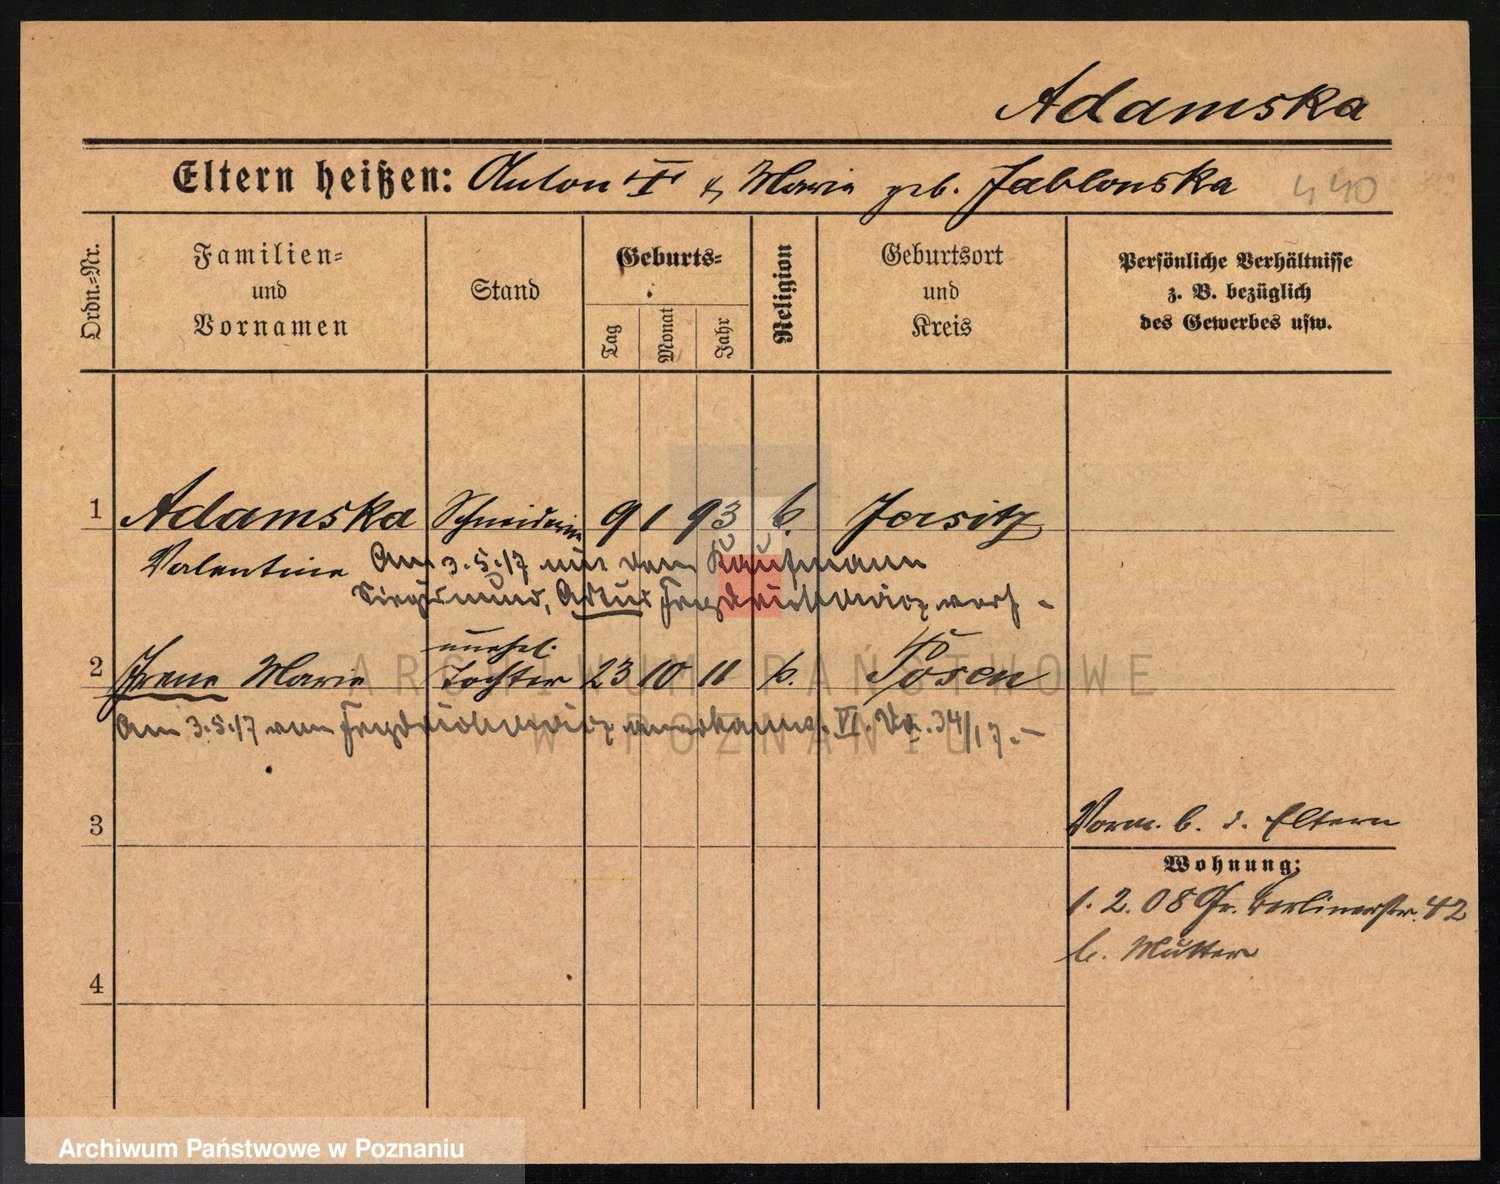 Adamska
Eltern heißen: Anton I & Maria geb. Jablonska 440
Ordn.-Nr.
Familien-
und
Vornamen
Stand
Geburts-
Tag
Monat
Jahr
Religion
Geburtsort
und
Kreis
Persönliche Verhältnisse
z. B. bezüglich
des Gewerbes usw.
1 Adamska Schneiderin 9 1 93 k. Jersitz
Valentine Am 3.5.17 mit dem Kaufmann
Siegismund, Artur verh -
unehel.
2 Irene Maria Tochter 23 10 11 k. Posen
Am 3.5.17 vom anerkannt. VI. 34/17.-
3
Vorm. b. d. Eltern
Wohnung:
1. 2. 08 Gr. Berlinerstr. 42
b. Mutter
4
ARCHIWUM PAŃSTWOWE
W POZNANIU
Archiwum Państwowe w Poznaniu